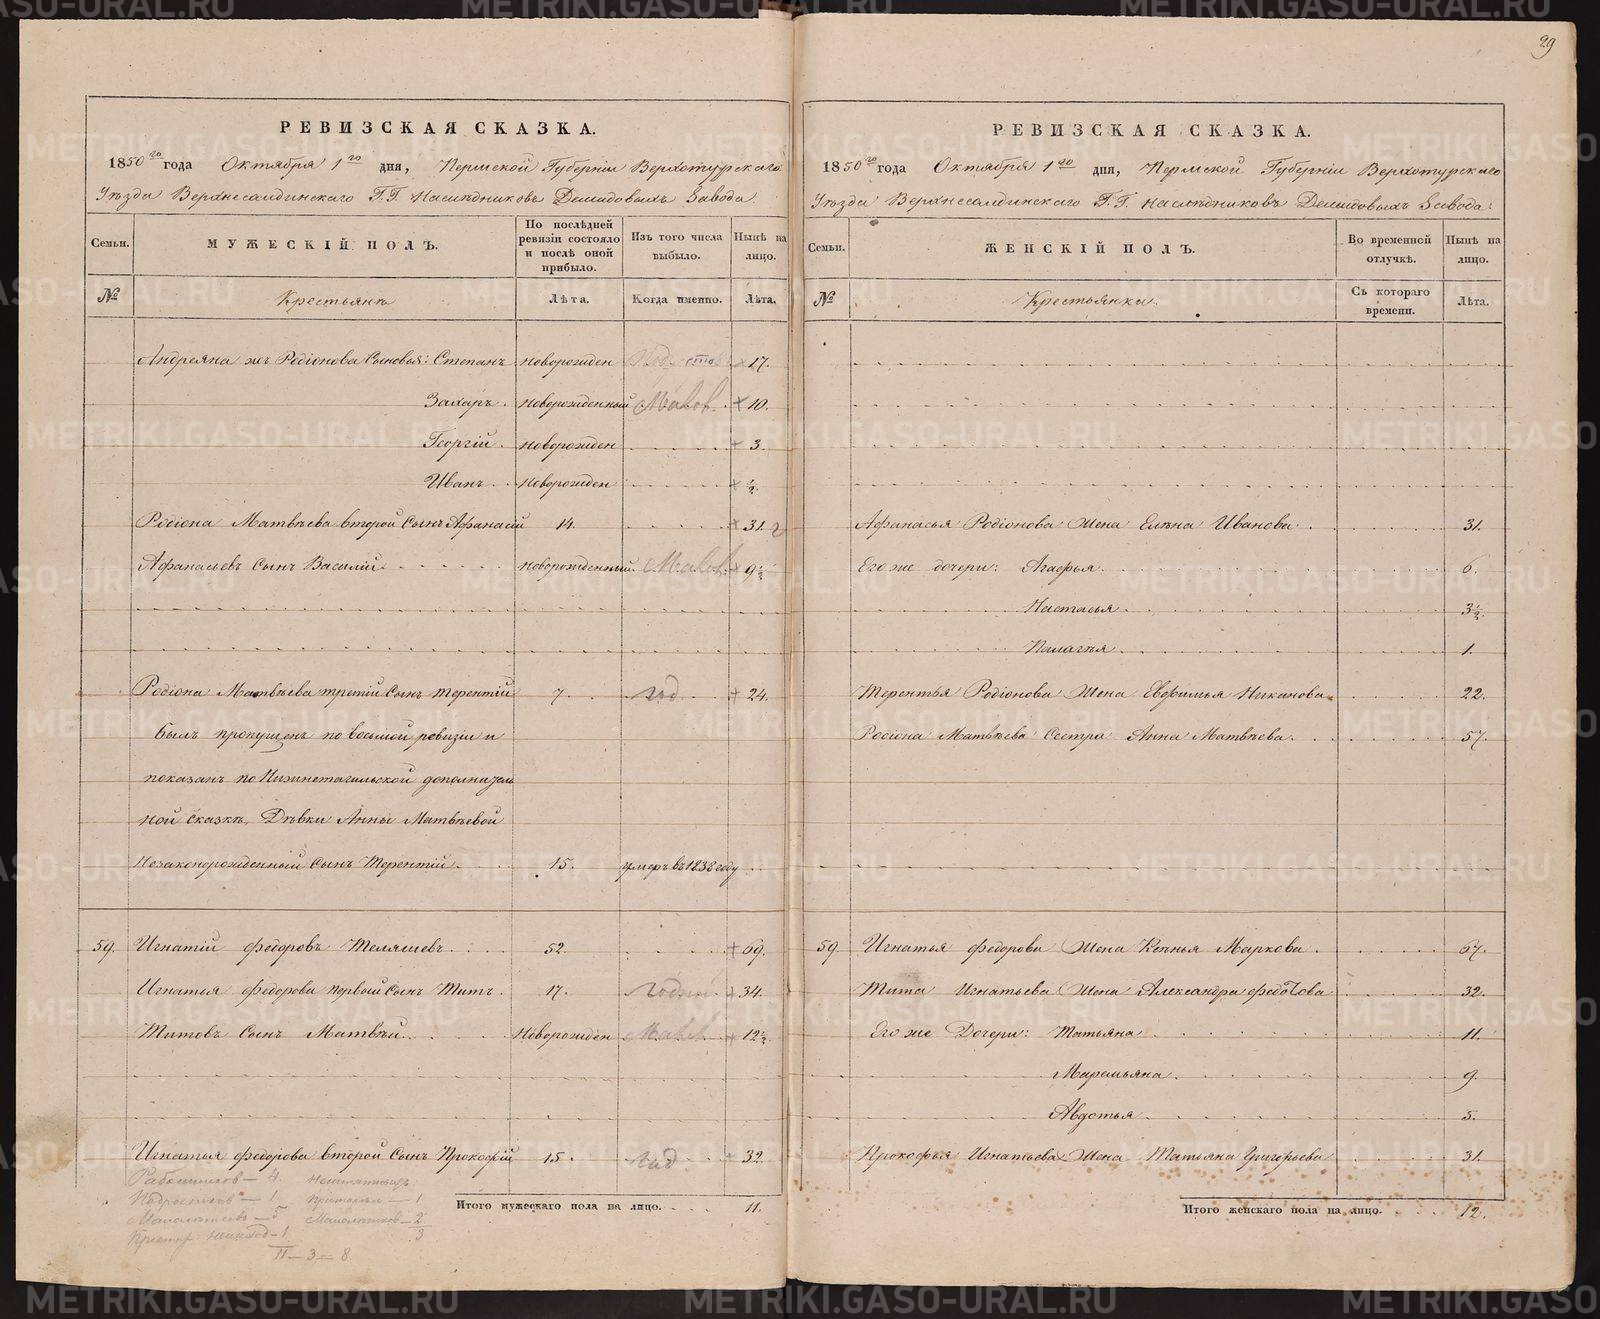 29
РЕВИЗСКАЯ СКАЗКА.
1850го года Октября 1го дня, Пермской Губернiи Верхотурскаго
Уѣзда Верхнесалдинскаго Г.Г. Наслѣдниковъ Демидовыхъ Завода.
Семьи.
МУЖЕСКIЙ ПОЛЪ.
По послѣдней ревизiи состояло и послѣ оной прибыло.
Изъ того числа выбыло.
Нынѣ на лицо.
№ Крестьянъ Лѣта. Когда именно. Лѣта.
Андреяна жъ Родiонова Сыновья: Степанъ новорожден 17.
Захаръ. новорожденный Малол. 10.
Георгiй. новорожден 3.
Иванъ. новорожден ½.
Родiона Матвѣева второй Сынъ Афанасiй 14. 31.
Афанасьевъ Сынъ Василiй новорожденный. Малол. 9½
Родiона Матвѣева третiй Сынъ Терентiй 7. год 24.
былъ пропущенъ по восьмой ревизiи и
показанъ по Нижнетагильской дополнитель
ной сказкѣ, Дѣвки Анны Матвѣевой
Незаконорожденный Сынъ Терентiй 15. умеръ въ 1838 году
59. Игнатiй Федоровъ Теляшевъ. 52. 69.
Игнатья Федорова первый Сынъ Титъ. 17. годный 34.
Титовъ Сынъ Матвѣй. Новорожден Малол. 12½
Игнатья Федорова второй Сынъ Прокофiй 15. год 32.
Итого мужескаго пола на лицо. 11.
Работников — 4.
Подростков — 1
Малолетков — 5
11 — 3 = 8
Малолетков — 2
3
РЕВИЗСКАЯ СКАЗКА.
1850го года Октября 1го дня, Пермской Губернiи Верхотурскаго
Уѣзда Верхнесалдинскаго Г.Г. Наслѣдниковъ Демидовыхъ Завода.
Семьи.
ЖЕНСКIЙ ПОЛЪ.
Во временной отлучкѣ.
Нынѣ на лицо.
№ Крестьянки. Съ котораго времени. Лѣта.
Афанасья Родiонова Жена Елѣна Иванова 31.
Его же дочери: Агафья. 6.
Настасья 3½.
Палагѣя 1.
Терентья Родiонова Жена Евфимья Никонова 22.
Родiона Матвѣева Сестра Анна Матвѣева. 57.
59. Игнатья Федорова Жена Ксѣнья Маркова 67.
Тита Игнатьева Жена Александра Федотова 32.
Его же Дочери: Татьяна 11.
Маремьяна 9.
Авдотья 5.
Прокофья Игнатьева Жена Татьяна Григорьева 31.
Итого женскаго пола на лицо. 12.
METRIKI.GASO-URAL.RU